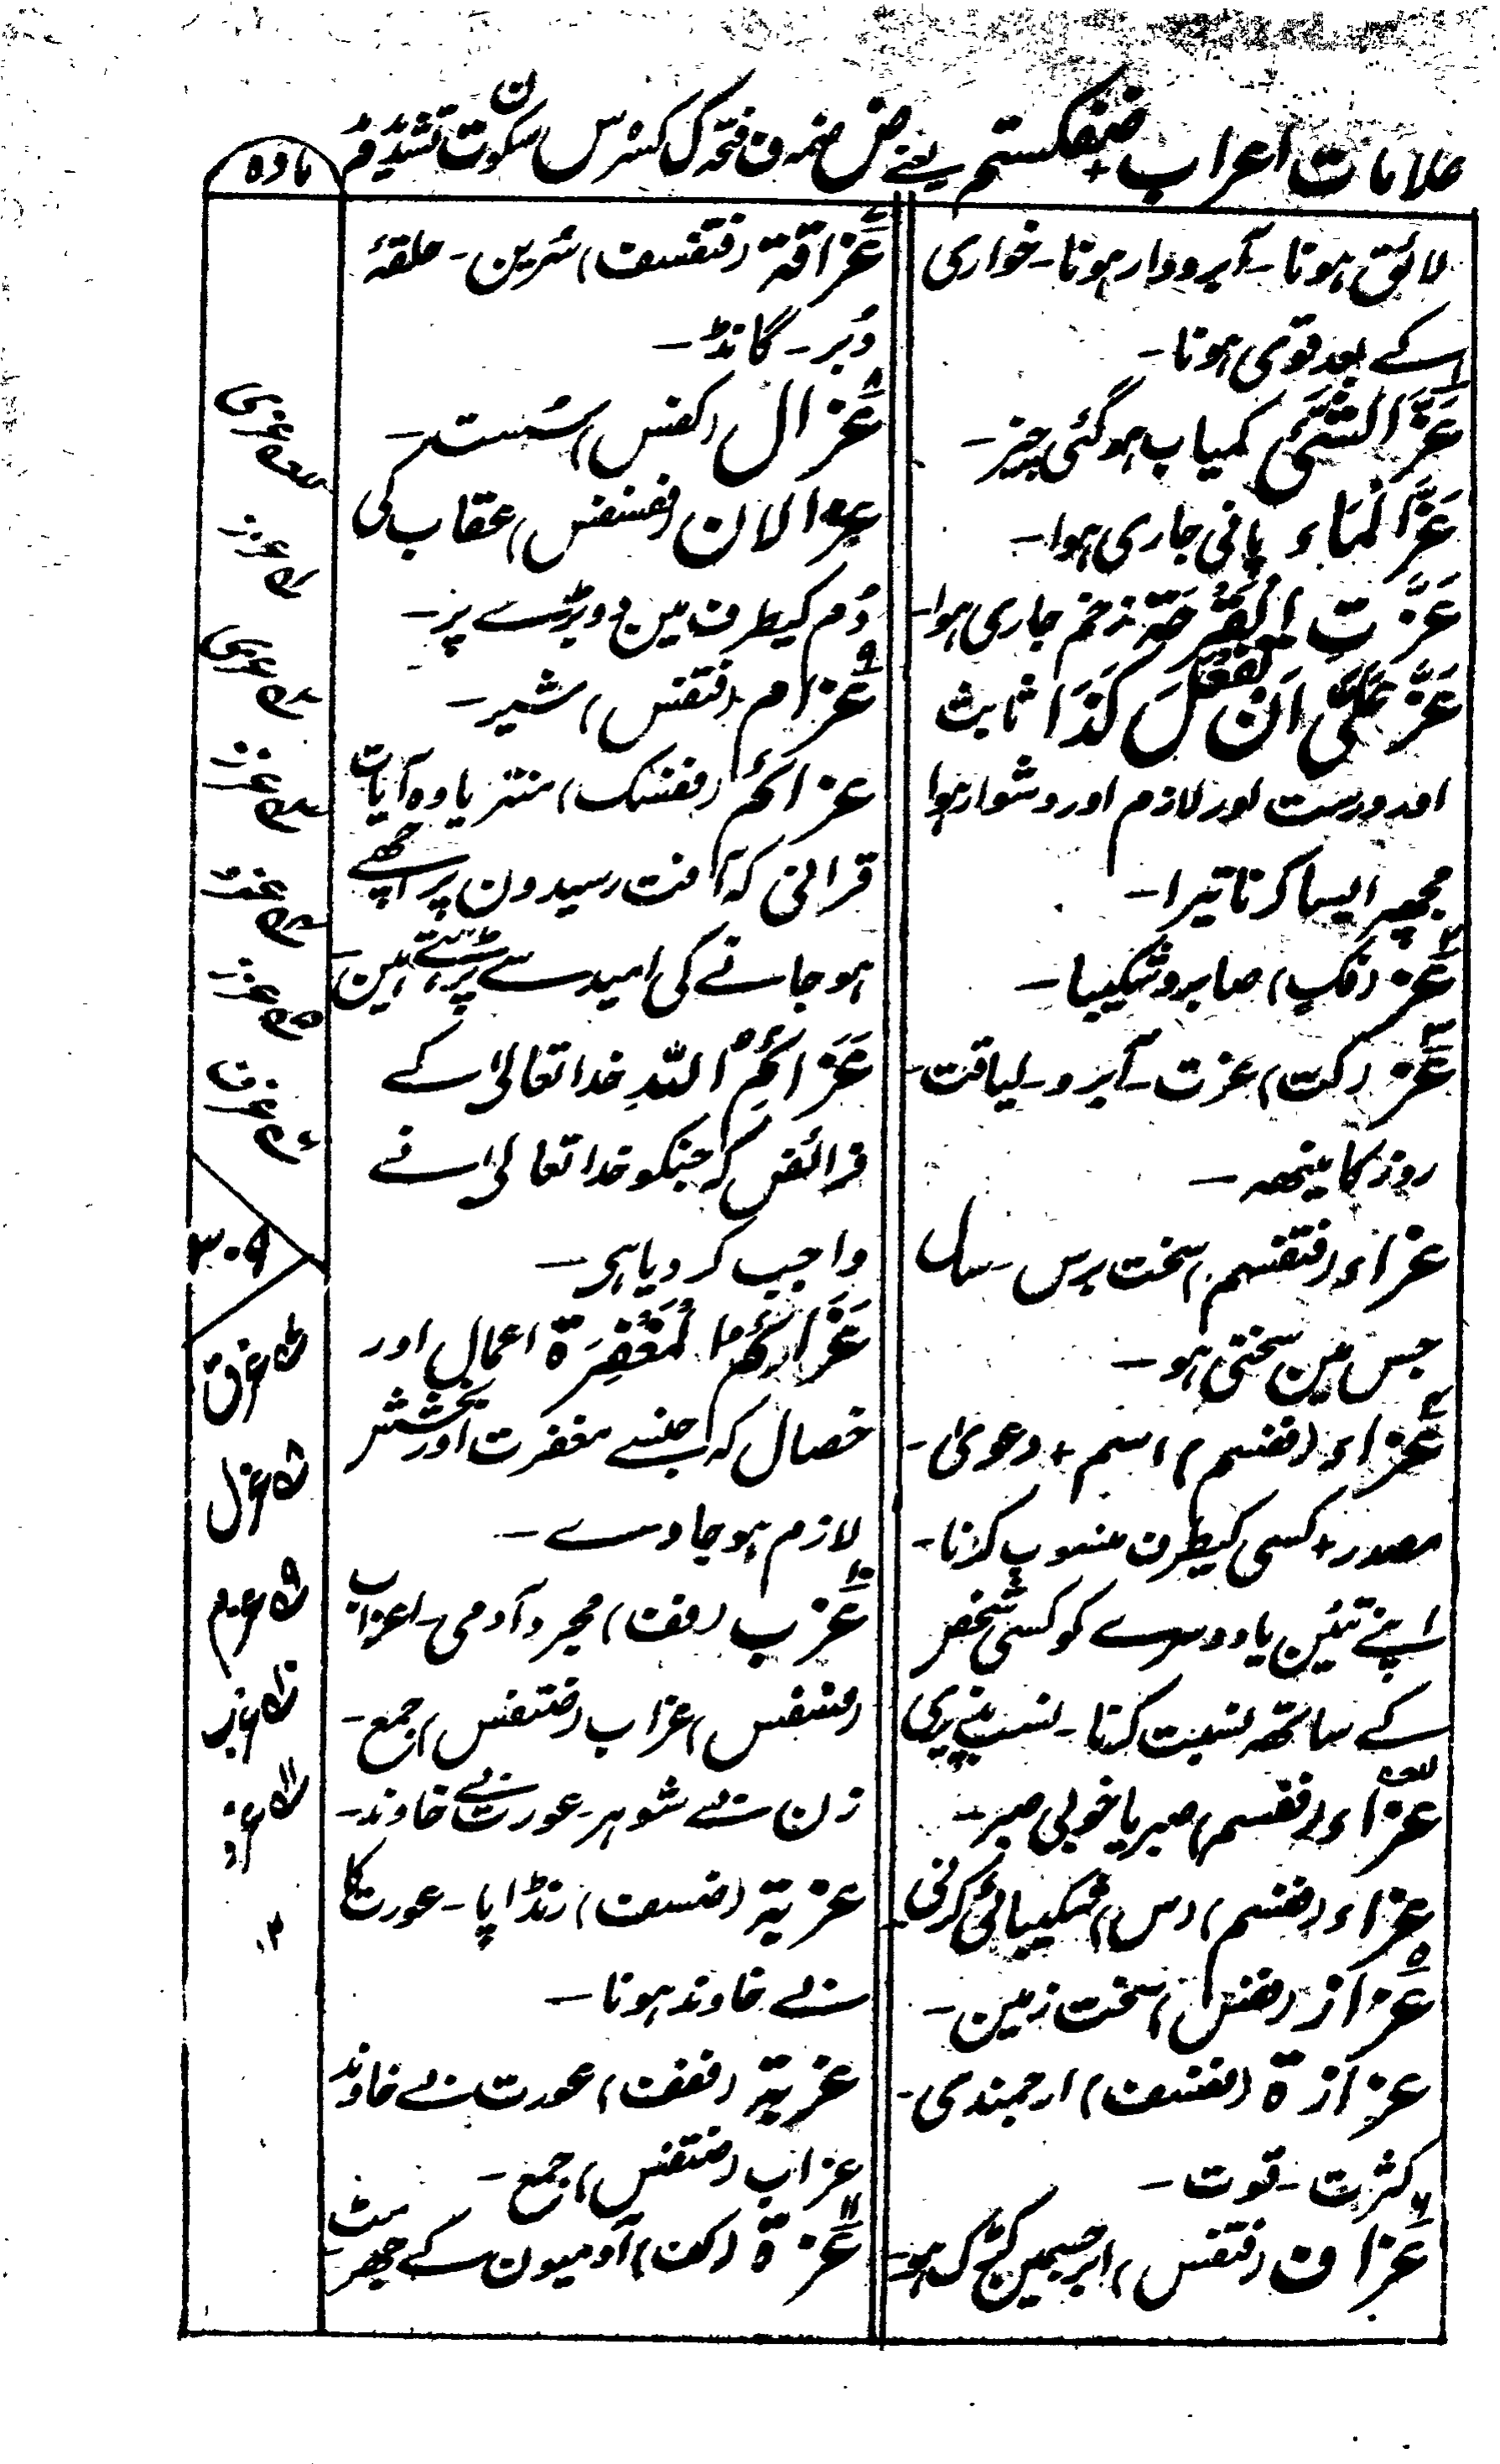 علامات اعراب ضفکستم یعنے ض ضمہ ف فتحہ ک کسرہ س سکون ت تشدید م
مادہ
لائق ہونا۔ آبرودار ہونا۔ خواری
کے بعد قوی ہونا۔
عَزَّ الشَّیُٔ کمیاب ہوگئی چیز۔
عَزَّ الْمَاء پانی جاری ہوا۔
عَزَّتِ الْقَرْحَۃ زخم جاری ہوا۔
عَزَّ عَلَیَّ اَنْ تَفْعَلَ کَذَا ثابت
اور درست اور لازم اور دشوار ہوا
مجھپر ایسا کرنا تیرا۔
۲ عز (فک) صابر و شکیبا۔
۳ عز (کت) عزت۔ آبرو۔ لیاقت۔
روز کا مینھہ۔
عزاء (فتفسم) سخت برس۔ سال
جس مین سختی ہو۔
۴ عزاء (فسم) اسم + دعویٰ۔
مصدر + کسی کیطرف منسوب کرنا۔
اپنے تئین یا دوسرے کو کسی شخص
کے ساتھہ نسبت کرنا۔
عزاء (ففسم) صبر یا خوبی صبر۔
عزاء (ففسم) (س) شکیبائی کرنی
۵ عزاز (ففس) سخت زمین۔
عزازۃ (ففسف) ارجمندی۔
کثرت۔ قوت۔
۶ عزاف (فتفس) ابر جسمین کڑک ہو۔
۷ عزاقۃ (فتفسف) سُرین۔ حلقۂ
دُبر۔ گانڈ۔
۸ عزال (کفس) سُست۔
عزالان (ففسفس) عقاب کی
دُم کیطرف مین دو بڑے پر۔
۹ عزام (فتفس) شیر۔
عزائم (ففسک) منتر یا وہ آیات
قرانی کہ آفت رسیدون پر اچھے
ہو جانے کی امید سے پڑہتے ہین۔
عَزَائِمُ اللّٰہِ خدا تعالیٰ کے
فرائض کہ جنکو خدا تعالیٰ نے
واجب کر دیا ہی۔
عَزَائِمُ الْمَغْفِرَۃ اعمال اور
خصال کہ جنسے مغفرت اور بخشش
لازم ہو جاوے۔
۱۰ عزب (فف) مجرد آدمی۔ اعزاب
(فسفس) عزاب (ضتفس) جمع۔
زن بے شوہر۔ عورت بے خاوند۔
عزبۃ (ضسف) رنڈاپا۔ عورت کا
بے خاوند ہونا۔
عزبۃ (ففف) عورت بے خاوند
عزاب (ضتفس) جمع۔
۱۱ عزۃ (کف) آدمیون کے جھرمٹ۔
۳۰۹
۷ عزق
۸ عزل
۹ عزم
۱۰ عزب